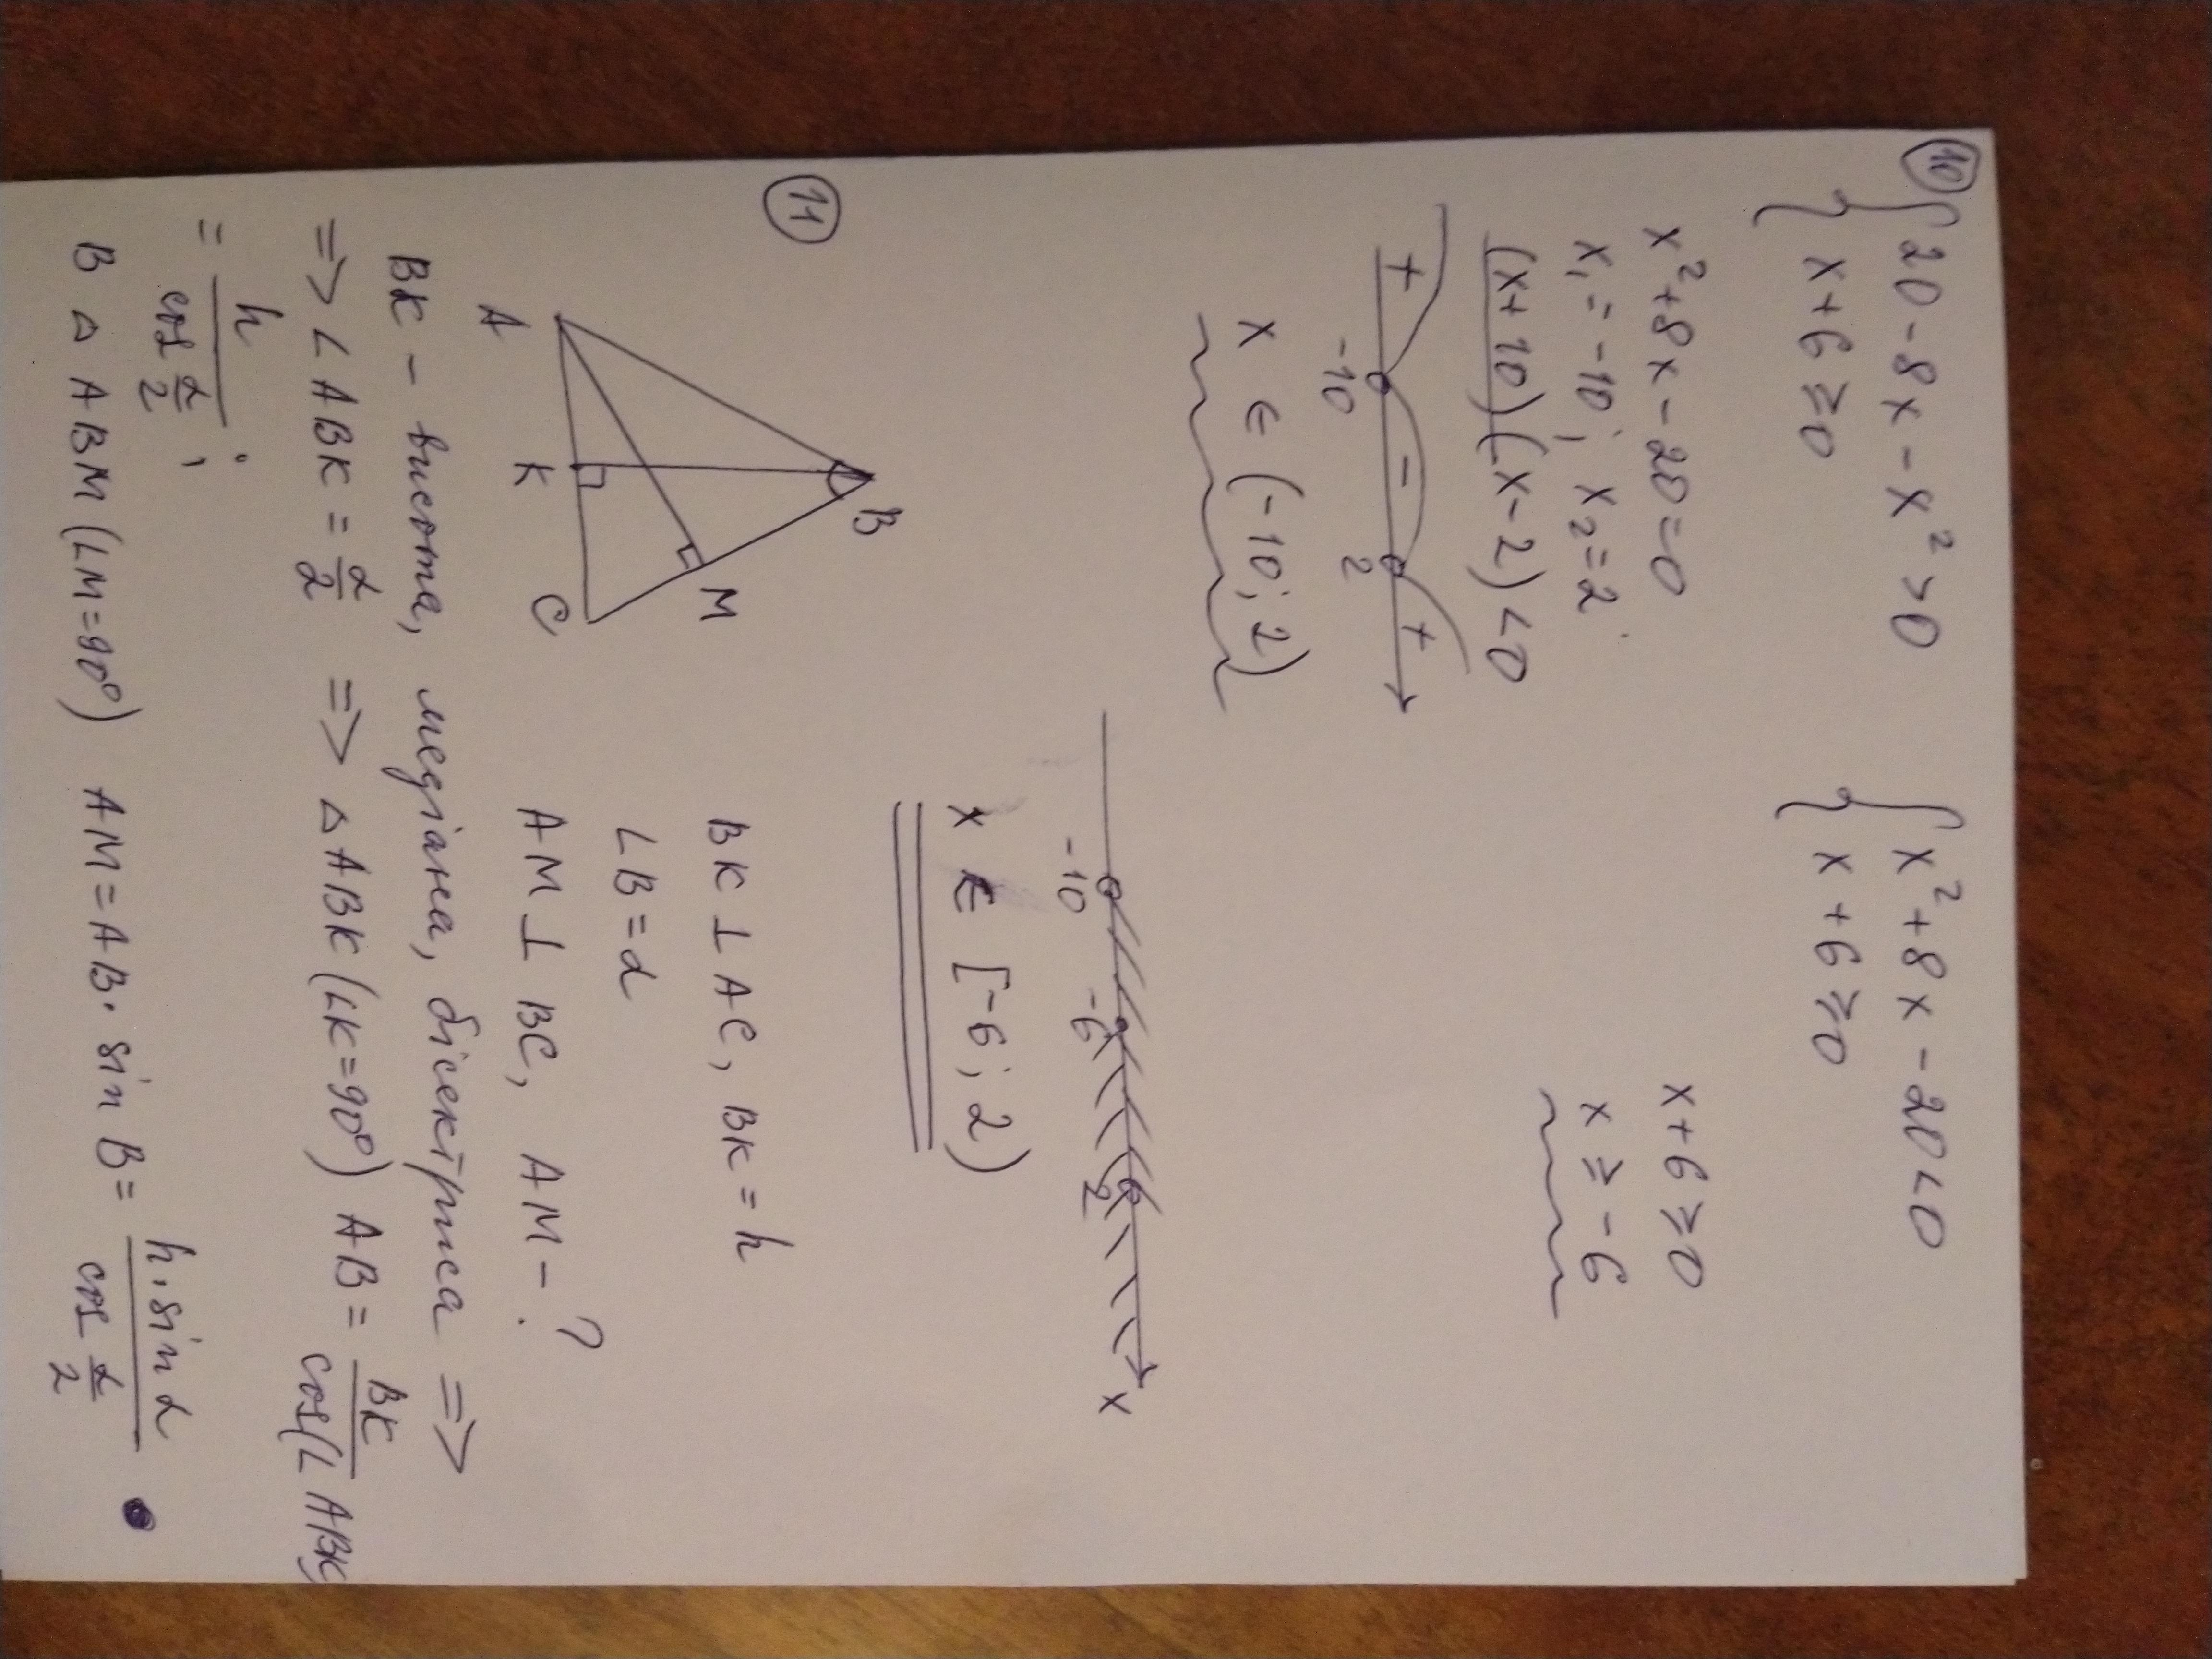 10 { 20 - 8x - x² > 0
x + 6 ≥ 0
{ x² + 8x - 20 < 0
x + 6 ≥ 0
x² + 8x - 20 = 0
x₁ = -10; x₂ = 2
(x + 10)(x - 2) < 0
+ - +
-10 2
x ∈ (-10; 2)
x + 6 ≥ 0
x ≥ -6
-10 -6 2 x
x ∈ [-6; 2)
11
B
M
A K C
BK ⊥ AC, BK = h
∠B = α
AM ⊥ BC, AM - ?
BK - висота, медіана, бісектриса =>
=> ∠ABK = α/2 => △ABK (∠K = 90°) AB = BK/cos(∠ABK)
= h/cos α/2 ;
В △ ABM (∠M = 90°) AM = AB · sin B = h · sin α/cos α/2